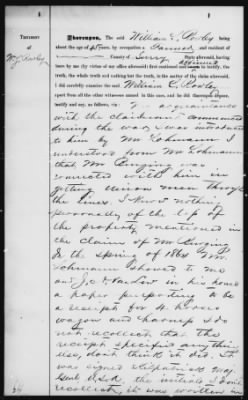 Testimony
of
Wm. C. Rowley
Thereupon, The said William C. Rowley being
about the age of 45 years, by occupation a Farmer, and resident of
County of Surry Party aforesaid, having
been by me by virtue of my office aforesaid first cautioned and affirmed to testify, the
truth, the whole truth and nothing but the truth, in the matter of the claim aforesaid,
I did carefully examine the said William C. Rowley
apart from all the other witnesses named in this case, and he did thereupon depose,
testify and say, as follows, viz: My acquaintance
with the claimant commenced
during the war, I was introduced
to him by Mr Lohmann I
understood from Mr Lohmann
that Mr
connected with him in
getting union men through
the lines. I knew nothing
personally of the loss of
the property mentioned in
the claim of Mr
In the spring of 1864 Mr
Lohmann showed to me
and J, C. in his house
a paper purporting to be
a receipt for 4 horses
wagon and harness I do
not recollect that the
receipt specified any thing
else, dont think it did. It
was signed Kilpatrick Maj
Genl U.S.A. the initials I dont
recollect, it was written in